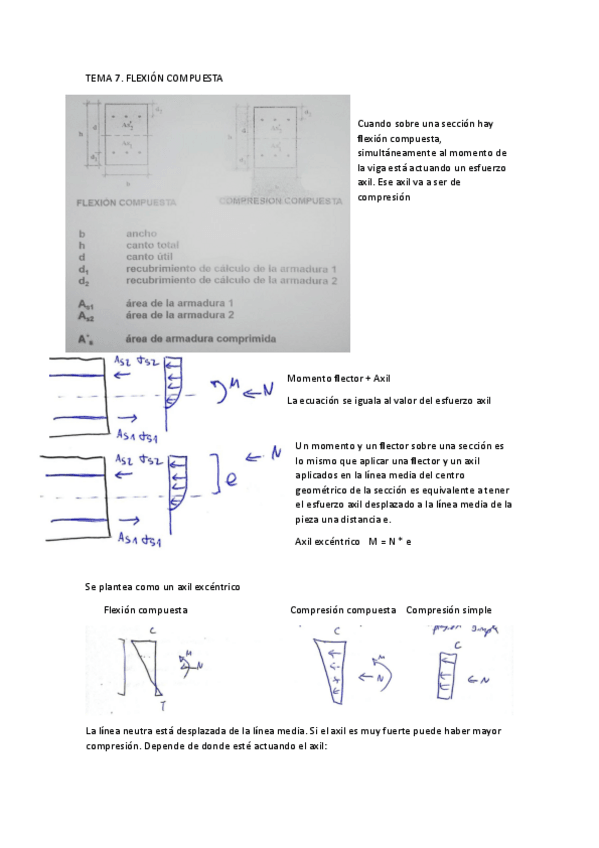 TEMA 7. FLEXIÓN COMPUESTA
d₁
h
d
As₂
As₁
d₂
b
h
FLEXIÓN COMPUESTA
COMPRESIÓN COMPUESTA
Cuando sobre una sección hay
flexión compuesta,
simultáneamente al momento de
la viga está actuando un esfuerzo
axil. Ese axil va a ser de
compresión
b ancho
h canto total
d canto útil
d₁ recubrimiento de cálculo de la armadura 1
d₂ recubrimiento de cálculo de la armadura 2
Aₛ₁ área de la armadura 1
Aₛ₂ área de la armadura 2
A'ₛ área de armadura comprimida
As2 σs2
M
N
As1 σs1
Momento flector + Axil
La ecuación se iguala al valor del esfuerzo axil
As2 σs2
e
N
As1 σs1
Un momento y un flector sobre una sección es
lo mismo que aplicar una flector y un axil
aplicados en la línea media del centro
geométrico de la sección es equivalente a tener
el esfuerzo axil desplazado a la línea media de la
pieza una distancia e.
Axil excéntrico M = N * e
Se plantea como un axil excéntrico
Flexión compuesta
Compresión compuesta
Compresión simple
C
M
N
T
C
M
N
simple
C
N
La línea neutra está desplazada de la línea media. Si el axil es muy fuerte puede haber mayor
compresión. Depende de donde esté actuando el axil: